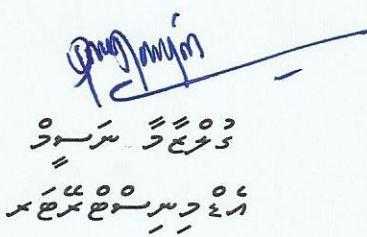 ގުލްޒާމާ ނަސީމް
އެޑްމިނިސްޓްރޭޓަރ